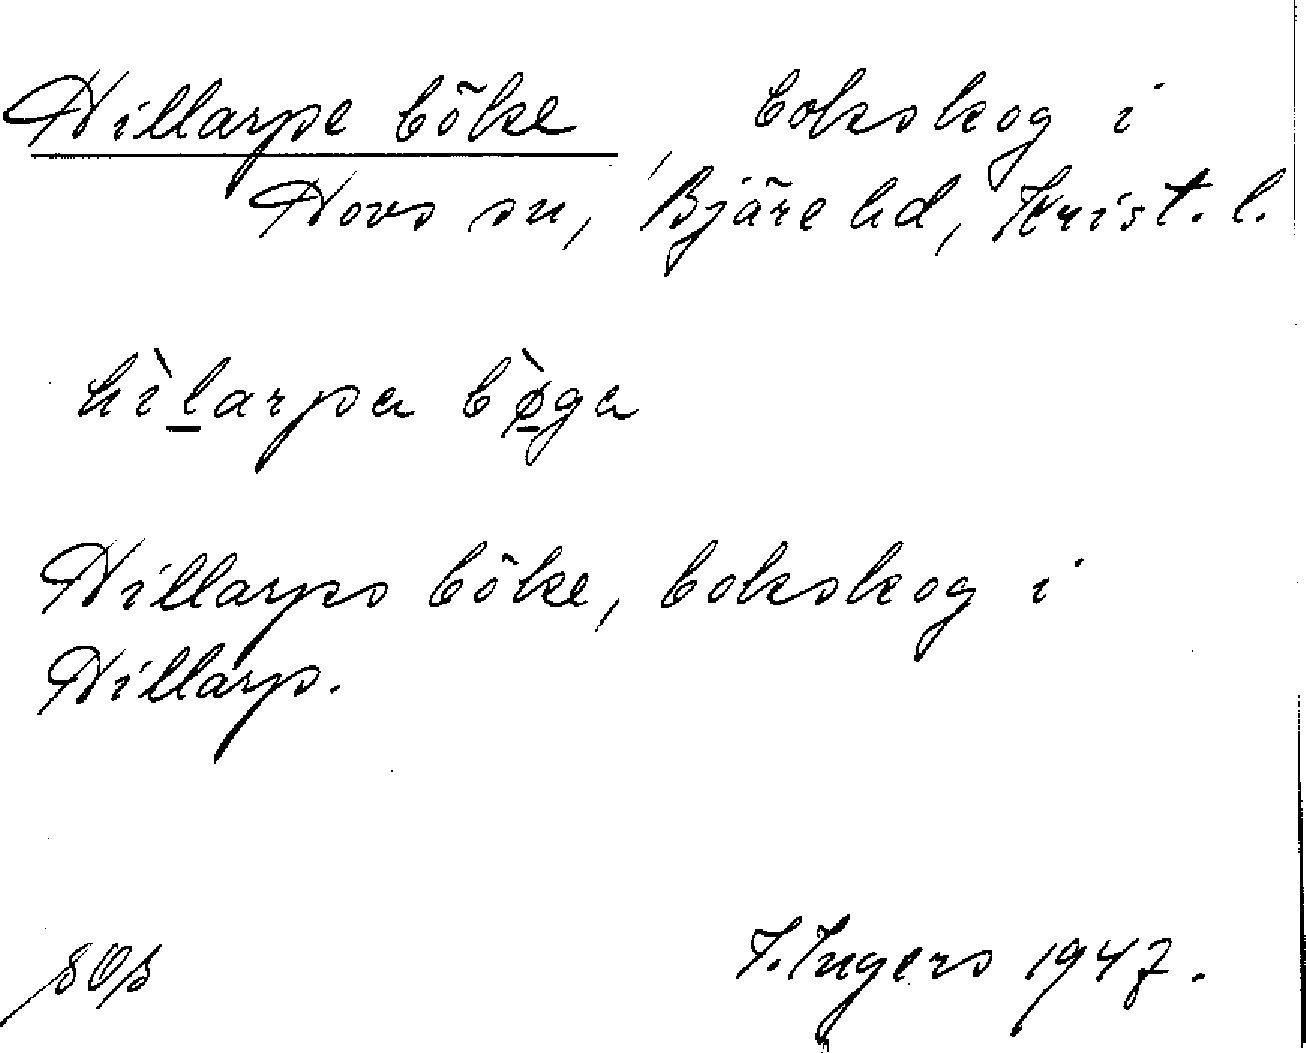 Hillarpe böke bokskog i
Hovs sn, Bjäre hd, Krist. l.
hìlarpa bø̀ga
Hillarps böke, bokskog i
Hillarp.
I. Ingers 1947.